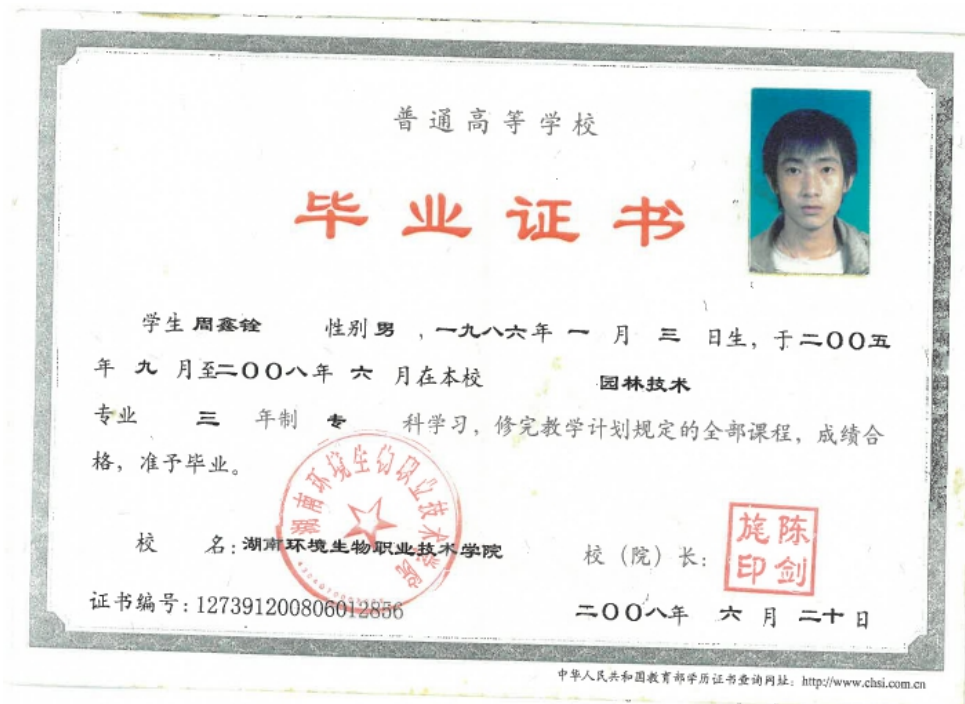 普通高等学校
毕业证书
学生 周鑫铨 性别 男 ，一九八六年 一 月 三 日生，于二〇〇五
年 九 月至二〇〇八年 六 月在本校 园林技术
专业 三 年制 专 科学习，修完教学计划规定的全部课程，成绩合
格，准予毕业。
湖南环境生物职业技术学院
校 名：湖南环境生物职业技术学院 校（院）长：
陈剑旄印
证书编号：127391200806012856 二〇〇八年 六 月 二十 日
中华人民共和国教育部学历证书查询网址：http://www.chsi.com.cn